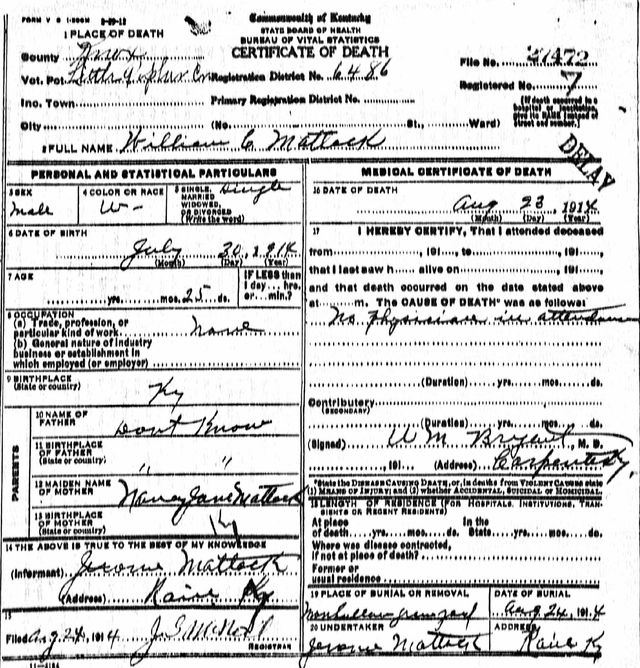 FORM V S 1-500M 8-29-12
Commonwealth of Kentucky
STATE BOARD OF HEALTH
BUREAU OF VITAL STATISTICS
CERTIFICATE OF DEATH
1 PLACE OF DEATH
County Knox
Vot. Pct.
Registration District No. 6486
Inc. Town
Primary Registration District No.
City (No. St., Ward)
File No. 21472
Registered No. 7
(If death occurred in a hospital or institution, give its NAME instead of street and number.)
2 FULL NAME William C Mattock
DELAY
PERSONAL AND STATISTICAL PARTICULARS
3 SEX
male
4 COLOR OR RACE
W-
5 SINGLE, MARRIED WIDOWED, OR DIVORCED (Write the word)
Single
6 DATE OF BIRTH
July 30, 1914
(Month) (Day) (Year)
7 AGE
yrs. mos. 25 ds.
IF LESS than 1 day... hrs. or... min.?
8 OCCUPATION
(a) Trade, profession, or particular kind of work None
(b) General nature of industry business or establishment in which employed (or employer)
9 BIRTHPLACE
(State or country)
Ky
PARENTS
10 NAME OF FATHER Dont Know
11 BIRTHPLACE OF FATHER (State or country) " "
12 MAIDEN NAME OF MOTHER Nancy Jane Mattock
13 BIRTHPLACE OF MOTHER (State or country) Ky
14 THE ABOVE IS TRUE TO THE BEST OF MY KNOWLEDGE
(Informant) Jerome Mattock
(Address) Ky
15
Filed Aug 24, 1914
REGISTRAR
11-4184
MEDICAL CERTIFICATE OF DEATH
16 DATE OF DEATH
Aug 23, 1914
(Month) (Day) (Year)
17 I HEREBY CERTIFY, That I attended deceased
from, 191..., to, 191...,
that I last saw h alive on, 191...,
and that death occurred on the date stated above
at m. The CAUSE OF DEATH* was as follows:
No physician in attendance
(Duration) yrs. mos. ds.
Contributory
(SECONDARY)
(Duration) yrs. mos. ds.
(Signed) W M Bryant, M. D.
, 191... (Address)
*State the DISEASE CAUSING DEATH, or, in deaths from VIOLENT CAUSES state (1) MEANS OF INJURY; and (2) whether ACCIDENTAL, SUICIDAL or HOMICIDAL.
18 LENGTH OF RESIDENCE (FOR HOSPITALS, INSTITUTIONS, TRANSIENTS OR RECENT RESIDENTS)
At place of death yrs. mos. ds. In the State yrs. mos. ds.
Where was disease contracted, if not at place of death?
Former or usual residence
19 PLACE OF BURIAL OR REMOVAL
DATE OF BURIAL
Aug 24, 1914
20 UNDERTAKER
Jerome Mattock
ADDRESS
Ky